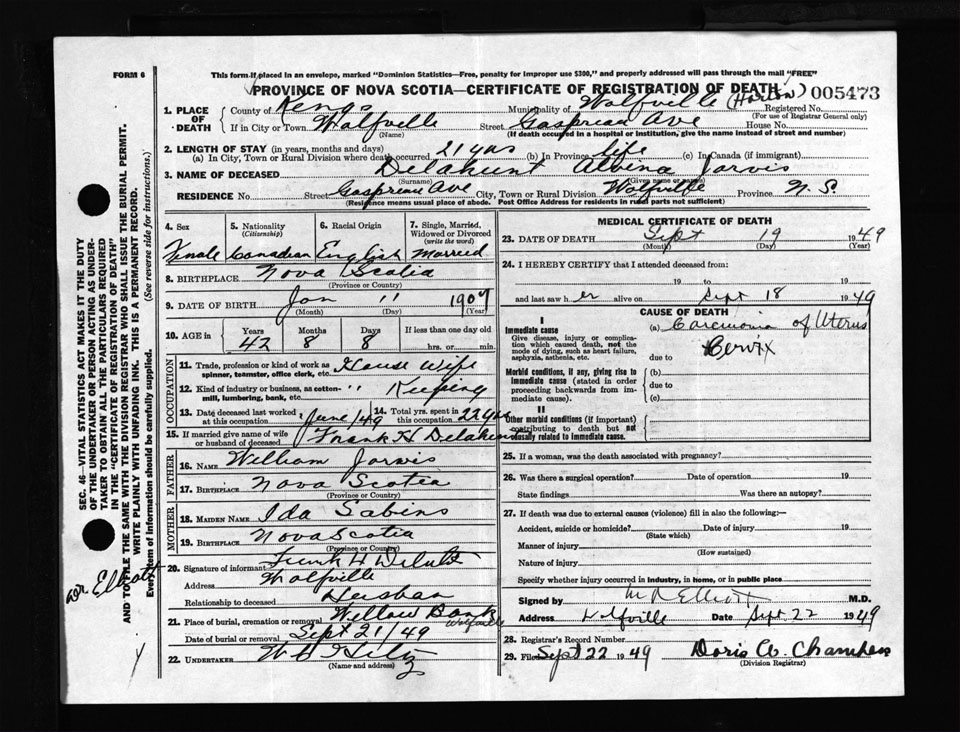 FORM 6
This form if placed in an envelope, marked "Dominion Statistics—Free, penalty for improper use $300," and properly addressed will pass through the mail "FREE"
PROVINCE OF NOVA SCOTIA—CERTIFICATE OF REGISTRATION OF DEATH
005473
1. PLACE OF DEATH
County of Kings Municipality of Wolfville (Horton) Registered No.
(For use of Registrar General only)
If in City or Town Wolfville Street Gasprean Ave House No.
(Name) (If death occurred in a hospital or institution, give the name instead of street and number)
2. LENGTH OF STAY (in years, months and days)
(a) In City, Town or Rural Division where death occurred 21 yrs (b) In Province life (c) In Canada (if immigrant)
3. NAME OF DECEASED Delahunt Albina Jarvis
(Surname) (Given name or names)
RESIDENCE No. Street Gasprean Ave City, Town or Rural Division Wolfville Province N. S.
(Residence means usual place of abode. Post Office Address for residents in rural parts not sufficient)
4. Sex Female
5. Nationality (Citizenship) Canadian
6. Racial Origin English
7. Single, Married, Widowed or Divorced (write the word) Married
8. BIRTHPLACE Nova Scotia
(Province or Country)
9. DATE OF BIRTH Jan 11 1907
(Month) (Day) (Year)
10. AGE in Years Months Days If less than one day old
42 8 8 hrs. or min.
OCCUPATION
11. Trade, profession or kind of work as spinner, teamster, office clerk, etc. House Wife
12. Kind of industry or business, as cotton-mill, lumbering, bank, etc. " Keeping
13. Date deceased last worked at this occupation June/49
14. Total yrs. spent in this occupation 22 yrs
15. If married give name of wife or husband of deceased Frank H Delahunt
FATHER
16. NAME William Jarvis
17. BIRTHPLACE Nova Scotia
(Province or Country)
MOTHER
18. MAIDEN NAME Ida Sabins
19. BIRTHPLACE Nova Scotia
(Province or Country)
20. Signature of informant Frank H
Address Wolfville
Relationship to deceased Husban
21. Place of burial, cremation or removal Willow Bank Wolfville
Date of burial or removal Sept 21/49
22. UNDERTAKER
MEDICAL CERTIFICATE OF DEATH
23. DATE OF DEATH Sept 19 1949
(Month) (Day) (Year)
24. I HEREBY CERTIFY that I attended deceased from:
19 to 19
and last saw her alive on Sept 18 1949
CAUSE OF DEATH
I
Immediate cause
Give disease, injury or complication which caused death, not the mode of dying, such as heart failure, asphyxia, asthenia, etc.
(a) Carcinoma of Uterus
due to Cervix
Morbid conditions, if any, giving rise to immediate cause (stated in order proceeding backwards from immediate cause).
(b)
due to
(c)
II
Other morbid conditions (if important) contributing to death but not causally related to immediate cause.
25. If a woman, was the death associated with pregnancy?
26. Was there a surgical operation? Date of operation 19
State findings Was there an autopsy?
27. If death was due to external causes (violence) fill in also the following:—
Accident, suicide or homicide? Date of injury 19
(State which)
Manner of injury
(How sustained)
Nature of injury
Specify whether injury occurred in industry, in home, or in public place
Signed by Elliott M.D.
Address Wolfville Date Sept. 22 1949
28. Registrar's Record Number
29. Filed Sept 22 1949 Doris W. Chambers
(Division Registrar)
SEC. 46—VITAL STATISTICS ACT MAKES IT THE DUTY
OF THE UNDERTAKER OR PERSON ACTING AS UNDER-
TAKER TO OBTAIN ALL THE PARTICULARS REQUIRED
IN THE "CERTIFICATE OF REGISTRATION OF DEATH"
AND TO FILE THE SAME WITH THE DIVISION REGISTRAR WHO SHALL ISSUE THE BURIAL PERMIT.
WRITE PLAINLY WITH UNFADING INK. THIS IS A PERMANENT RECORD.
Every item of information should be carefully supplied. (See reverse side for instructions.)
Dr. Elliott